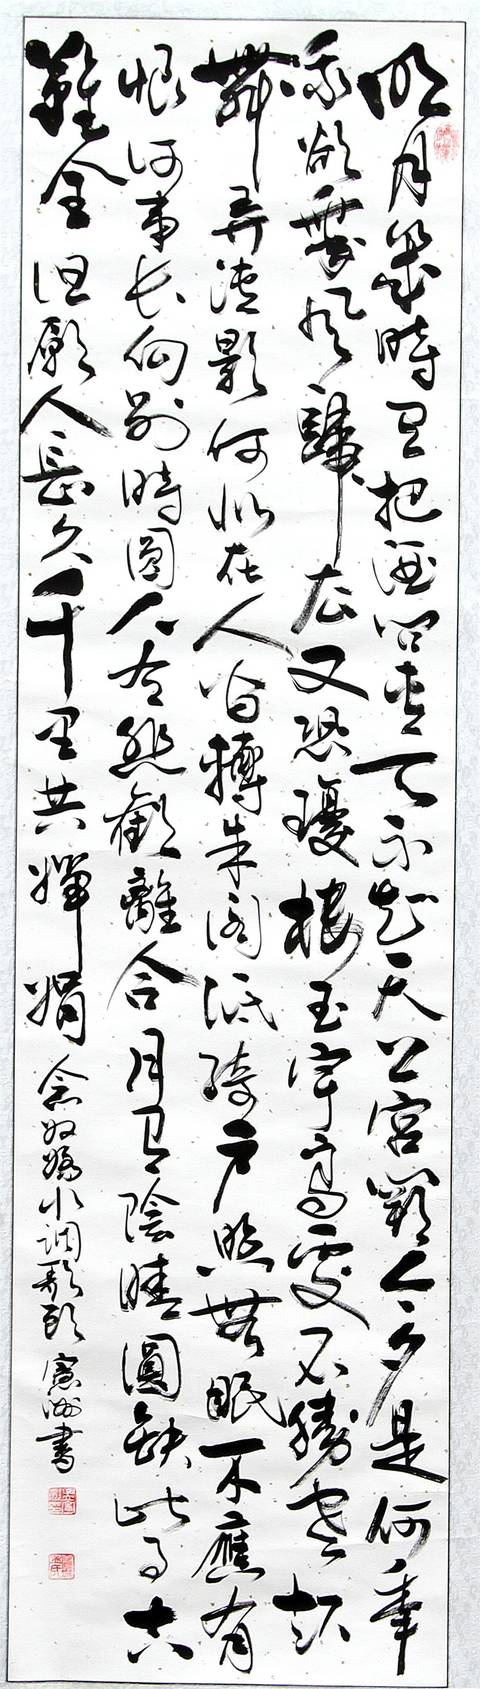 明月幾時有把酒問青天不知天上宮闕今夕是何年
我欲乘風歸去又恐瓊樓玉宇高處不勝寒起
舞弄清影何似在人間轉朱閣低綺戶照無眠不應有
恨何事长向别時圓人有悲歡離合月有陰晴圓缺此事古
難全但願人長久千里共嬋娟 念奴嬌水調歌頭 憲洲書